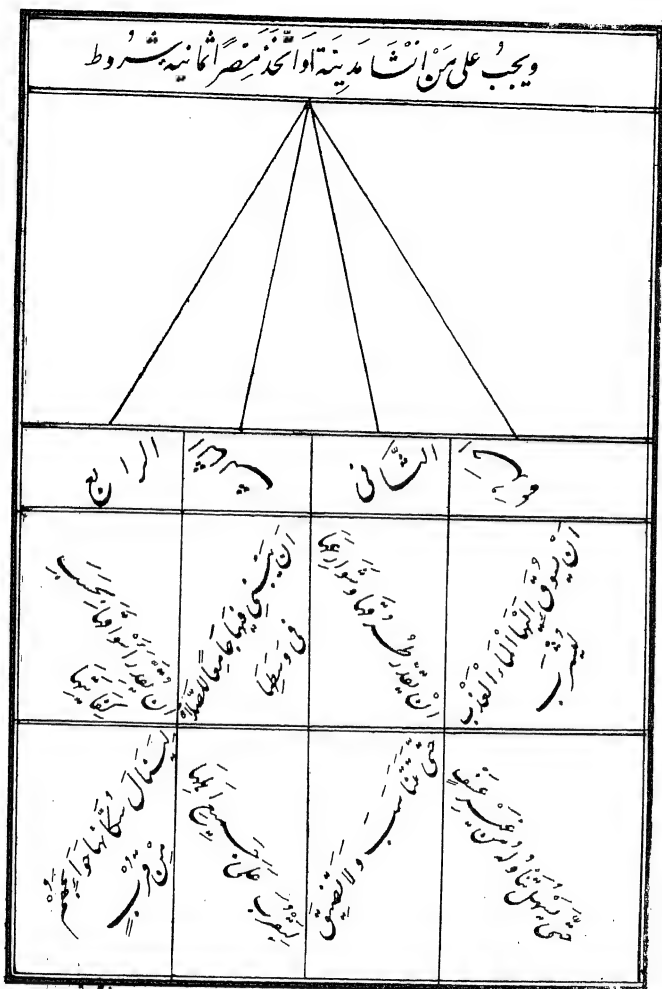 ويجبُ على مَنْ انْشَا مَدِينَة اَوَاتَّخَذَ مِصْرًا ثمانيه شُروط
الثَّانى
الرابع
اَنْ يَسُوقَ اِلَيْهَا الماء العَذْبَ
ليشربَ
انْ يُقَدِّرَ طُرُقَهَا وَشَوَارِعَهَا
اَنْ يَبْنِىَ فيهَا جَامِعًا للصَّلاة
فى وَسَطِهَا
ان يُقَدِّرَ اَسْوَاقَهَا بحَسَبِ
كِفَايَتِهَا
حتّى يَسْهُلَ تَنَاوُلُهُ مِنْ غَيْرِ عَسْفٍ
حتّى تَتَنَاسَبَ وَلا تَضِيقَ
لِيَقْرُبَ عَلَى جَمِيعِ اَهْلِهَا
ليَنَالَ سُكَّانُهَا حَوَائِجَهُمْ
مِنْ قُرْبٍ